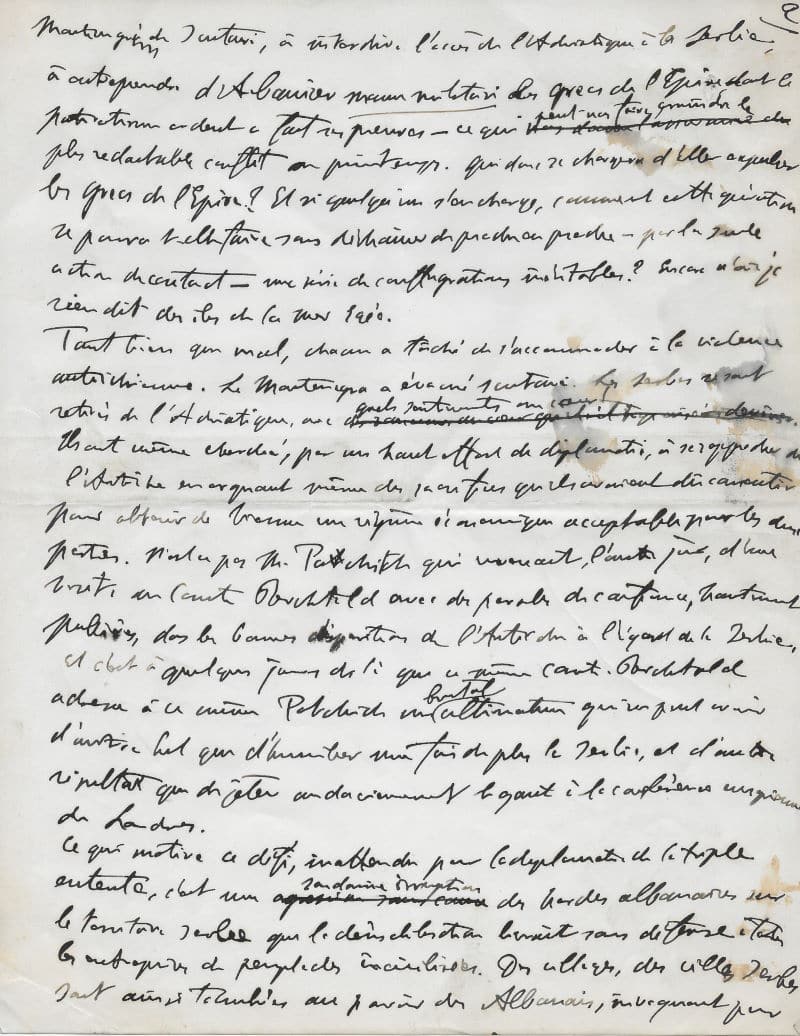 2
Monténégrins de Scutari, à interdire l'accès de l'Adriatique à la Serbie,
à entreprendre d'Albaniser manu militari les grecs de l'Epire dont le
patriotisme ardent a fait ses preuves – ce qui peut nous faire craindre le
plus redoutable conflit au printemps. Qui donc se chargera d'aller expulser
les grecs de l'Epire? Et si quelqu'un s'en charge, comment cette opération
se pourra-t-elle faire sans déchaîner de proche en proche – par la seule
action de contact – une série de conflagrations inévitables? Encore n'ai-je
rien dit des îles de la mer Egée.
Tant bien que mal, chacun a tâché de s'accommoder à la violence
autrichienne. Le Montenegro a évacué Scutari. Les Serbes se sont
retirés de l'Adriatique, avec quels sentiments au cœur!
Ils ont même cherché, par un haut effort de diplomatie, à se rapprocher de
l'Autriche en arguant même des sacrifices qu'ils avaient dû consentir
pour obtenir de Vienne un régime économique acceptable pour les deux
parties. N'est-ce pas M. Patchich qui revenait, l'autre jour, d'une
visite au Comte Berchtold avec des paroles de confiance, hautement
publiées, dans les bonnes dispositions de l'Autriche à l'égard de la Serbie,
et c'est à quelques jours de là que ce même comte Berchtold
adresse à ce même Patchich un brutal ultimatum qui ne peut avoir
d'autre but que d'humilier une fois de plus la Serbie, et d'autre
résultat que de jeter audacieusement le gant à la conférence européenne
de Londres.
Ce qui motive ce défi, inattendu pour la diplomatie de la triple
entente, c'est une soudaine irruption des hordes albanaises sur
le territoire serbe que la démobilisation livrait sans défense à toutes
les entreprises de peuplades incivilisées. Des villages, des villes serbes
sont ainsi tombées au pouvoir des Albanais, invoquant pour